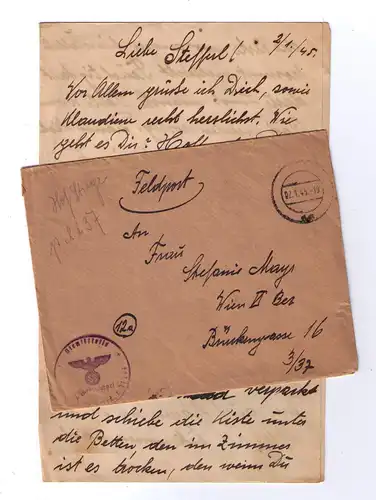 2/1./45.
Liebe Steffel!
Vor Allem grüße ich Dich, sowie
Klaudiene recht herzlichst. Wie
geht es Dir?
Feldpost
02.1.45.-19
An
Frau
Stefanie Mayr
Wien II Bez
Brückengasse 16
3/37
12a
Dienststelle
verpackt
und schiebe die Kiste unter
die Betten den im Zimmer
ist es trocken, den wenn Du